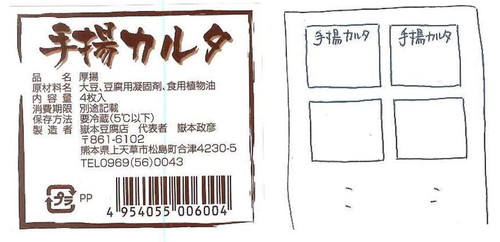 手揚カルタ
品名 厚揚
原材料名 大豆、豆腐用凝固剤、食用植物油
内容量 4枚入
消費期限 別途記載
保存方法 要冷蔵(5℃以下)
製造者 嶽本豆腐店 代表者 嶽本政彦
〒861-6102
熊本県上天草市松島町合津4230-5
TEL0969(56)0043
プラ PP
4 954055 006004
手揚カルタ 手揚カルタ